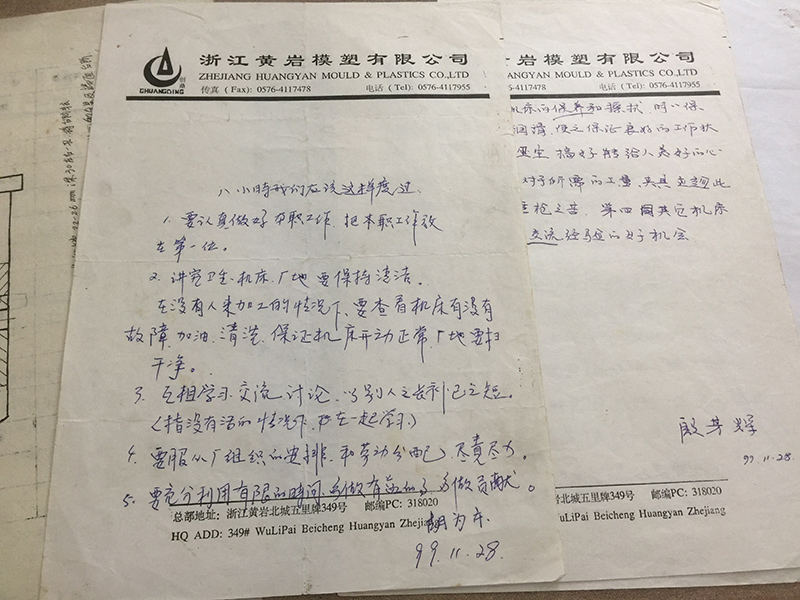 创鼎
CHUANGDING
浙江黄岩模塑有限公司
ZHEJIANG HUANGYAN MOULD & PLASTICS CO.,LTD
传真 (Fax): 0576-4117478 电话 (Tel): 0576-4117955
八小时我们应该这样度过
1. 要认真做好本职工作, 把本职工作放
在第一位。
2. 讲究卫生, 机床、厂地要保持清洁。
在没有人来加工的情况下, 要查看机床有没有
故障, 加油、清洗、保证机床开动正常, 厂地要扫
干净。
3. 互相学习、交流、讨论, 以别人之长补己之短。
(指没有活的情况下, 在一起学习)
4. 要服从厂组织的安排, 和劳动分配, 尽责尽力。
5. 要充分利用有限的时间, 多做有益的事, 多做贡献。
胡为
99.11.28.
总部地址: 浙江黄岩北城五里牌349号 邮编PC: 318020
HQ ADD: 349# WuLiPai Beicheng Huangyan Zhejiang
黄岩模塑有限公司
NGYAN MOULD & PLASTICS CO.,LTD
4117478 电话 (Tel): 0576-4117955
机床的保养和擦拭, 时时保
润滑, 使之保证良好的工作状
搞好 给人美好的心
对于所需的工量、夹具
第四
交流经验的好机会
殷芳辉
99.11.28.
岩北城五里牌349号 邮编PC: 318020
WuLiPai Beicheng Huangyan Zhejiang